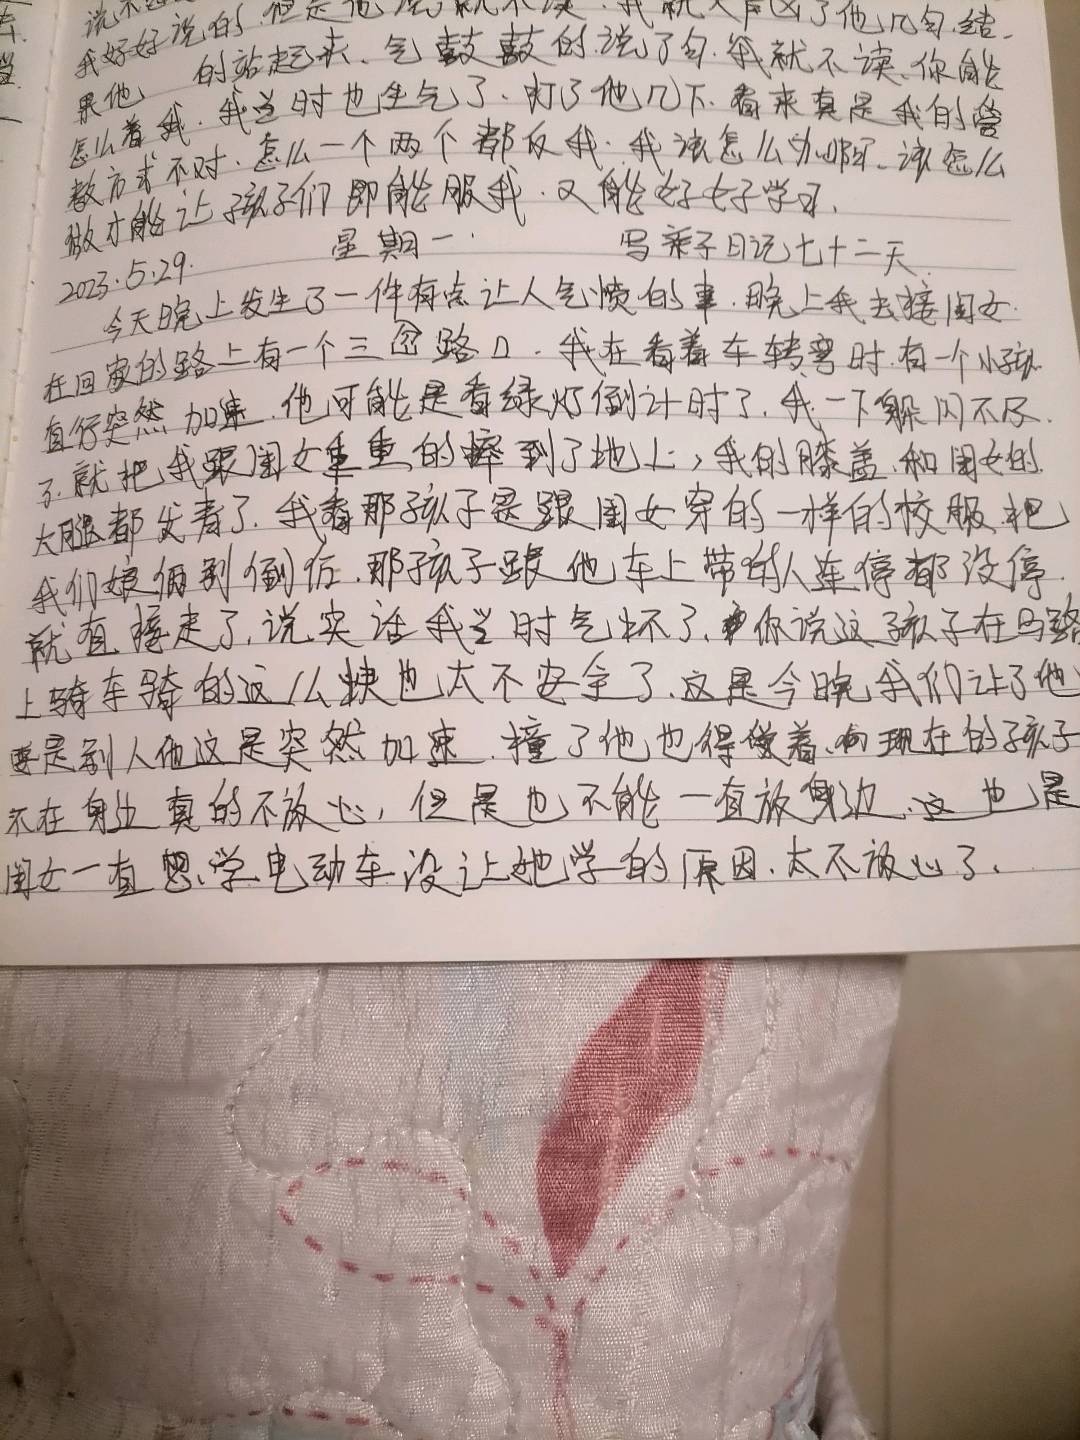 我好好说的 但是他说就不读.我就大声凶了他几句.结.
果他 的站起来.气鼓鼓的说了句.我就不读.你能
怎么着我.我当时也生气了.打了他几下.看来真是我的管
教方式不对.怎么一个两个都反我.我该怎么办啊.该怎么
做才能让孩子们即能服我.又能好好学习.
2023.5.29. 星期一. 写亲子日记七十二天.
今天晚上发生了一件有点让人气愤的事.晚上我去接闺女.
在回家的路上有一个三岔路口.我在看着车转弯时.有一个小孩
直行突然加速.他可能是看绿灯倒计时了.我一下躲闪不及.
了.就把我跟闺女重重的摔到了地上,我的膝盖.和闺女的
大腿都发青了.我看那孩子是跟闺女穿的一样的校服.把
我们娘俩别倒后.那孩子跟他车上带的人连停都没停.
就直接走了.说实话我当时气坏了.你说这孩子在马路
上骑车骑的这么快也太不安全了.这是今晚我们让了他
要是别人他这是突然加速.撞了他也得受着.现在的孩子
不在身边真的不放心,但是也不能一直放身边.这也是
闺女一直想学电动车没让她学的原因.太不放心了.